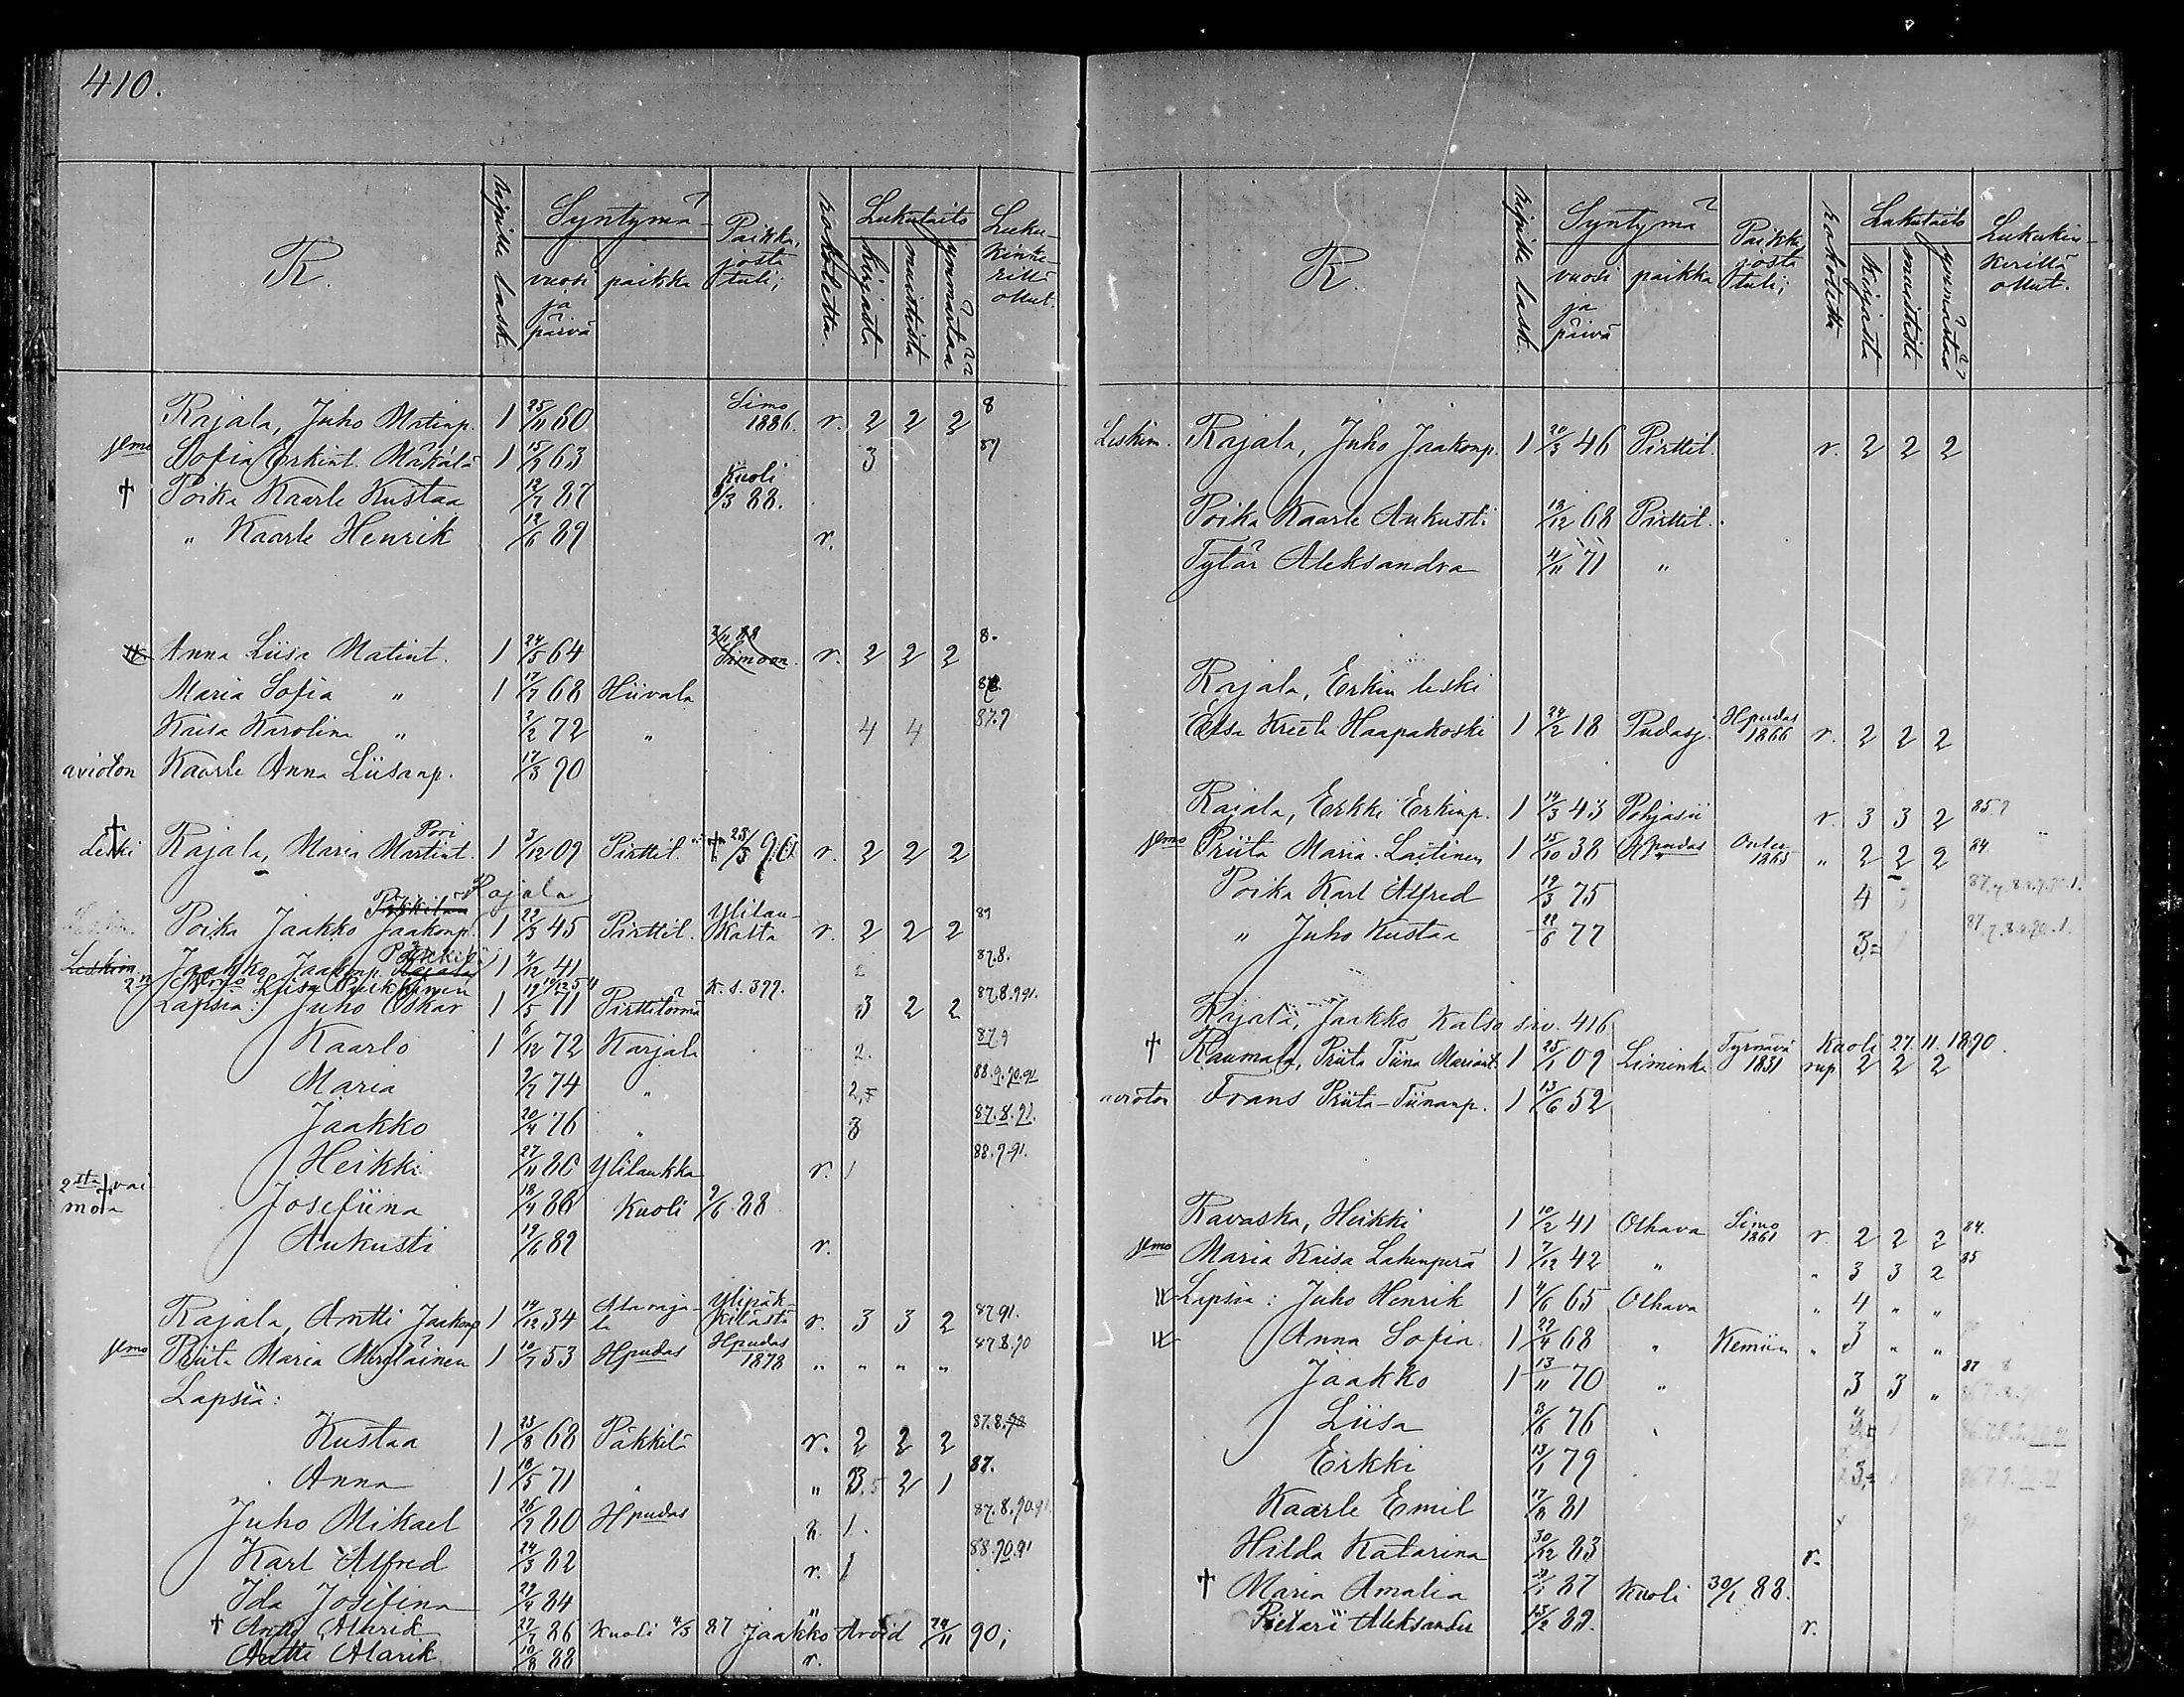 410.
R. Ripille lask. Syntymä- vuosi ja päivä paikka Paikka, josta tuli; rokotettu. Lukutaito kirjasta muistista ymmärtää Luku-kinke-rillä ollut.
Rajala, Juho Matinp. 1 25/11 60 Simo 1886. r. 2 2 2 8
Sofia Erkint. Mäkälä 1 15/2 63 3 87
† Poika Kaarle Kustaa 12/7 87 Kuoli 8/3 88.
" Kaarle Henrik 12/6 89 r.
Anna Liisa Matint. 1 24/5 64 Simoon. r. 2 2 2 8.
Maria Sofia " 1 17/7 68 Hiivala
Kaisa Karolina " 2/2 72 " 4 4 87.9
avioton Kaarle Anna Liisanp. 17/3 90
† Leski Rajala, Maria Martint. Pori 1 3/12 09 Pirttil. † 23/5 90 r. 2 2 2
Rajala
Poika Jaakko Jaakonp. 1 22/3 45 Pirttil. Ylilau-kalta r. 2 2 2 89
Leskim. Jaakko Jaakonp. Rajala 1 4/12 41 2 87.8.
K. s. 399.
Lapsia: Juho Oskar 1 19/5 71 Pirttitörmä 3 2 2 87.8.9.91.
Kaarlo 1 6/12 72 Karjala 2. 87.9
Maria 2/7 74 " 2,5 88.9.90.91
Jaakko 20/4 76 " 3 87.8.91.
Heikki 27/11 86 Ylilaukka r. 1 88.9.91.
2sta vai mosta † Josefiina 18/4 88 Kuoli 9/6 88
Aukusti 19/6 89 r.
Rajala, Antti Jaakonp 1 14/12 34 Alaraja-la Ylipäk-kilästä r. 3 3 2 87.91.
Priita Maria 1 10/7 53 Hpudas Hpudas 1878 " " " " 87.8.90
Lapsia:
Kustaa 1 23/8 68 Päkkilä r. 2 2 2 87.8.90
Anna 1 18/5 71 " " 3.5 2 1 87.
Juho Mikael 26/2 80 Hpudas r. 1. 87.8.90.91
Karl Alfred 24/3 82 r. 1 88.90.91
Ida Josefina 29/4 84 "
† Antti Alarik 27/7 86 Kuoli 4/5 87 Jaakko Arvid 24/11 90;
Antti Alarik 19/8 88 r.
R. Ripille lask. Syntymä vuosi ja päivä paikka Paikka, josta tuli; rokotettu Lukutaito kirjasta muistista ymmärtää Lukukin-kerillä ollut.
Leskim. Rajala, Juho Jaakonp. 1 20/3 46 Pirttil. r. 2 2 2
Poika Kaarle Aukusti 18/12 68 Pirttil.
Tytär Aleksandra 4/11 71 "
Rajala, Erkin leski
Elsa Kreeta Haapakoski 1 24/2 18 Pudasj. Hpudas 1866 r. 2 2 2
Rajala, Erkki Erkinp. 1 14/3 43 Pohjasii r. 3 3 2 85.9
Priita Maria Laitinen 1 15/10 38 Hpudas 1865 " 2 2 2 84
Poika Karl Alfred 19/3 75 4
" Juho Kustaa 22/6 77 3
Rajala, Jaakko Katso siv. 416
† Raumala, Priita Tiina Mariant. 1 25/1 09 Liminka Tyrnävä 1831 rup 2 2 2 Kuoli 27.11.1890.
avioton Frans Priita-Tiinanp. 1 13/6 52
Ravaska, Heikki 1 10/2 41 Olhava Simo 1861 r. 2 2 2 84.
Maria Kaisa Lakenperä 1 7/12 42 " " 3 3 2 85
Lapsia: Juho Henrik 1 4/6 65 Olhava " 4 " "
Anna Sofia 1 22/4 68 " Kemiin " 3 " "
Jaakko 1 13/11 70 " 3 3 " 87
Liisa 3/6 76
Erkki 13/1 79 3
Kaarle Emil 17/8 81
Hilda Katarina 30/12 83 r.
† Maria Amalia 87 Kuoli 30/1 88.
Pietari Aleksander 89. r.